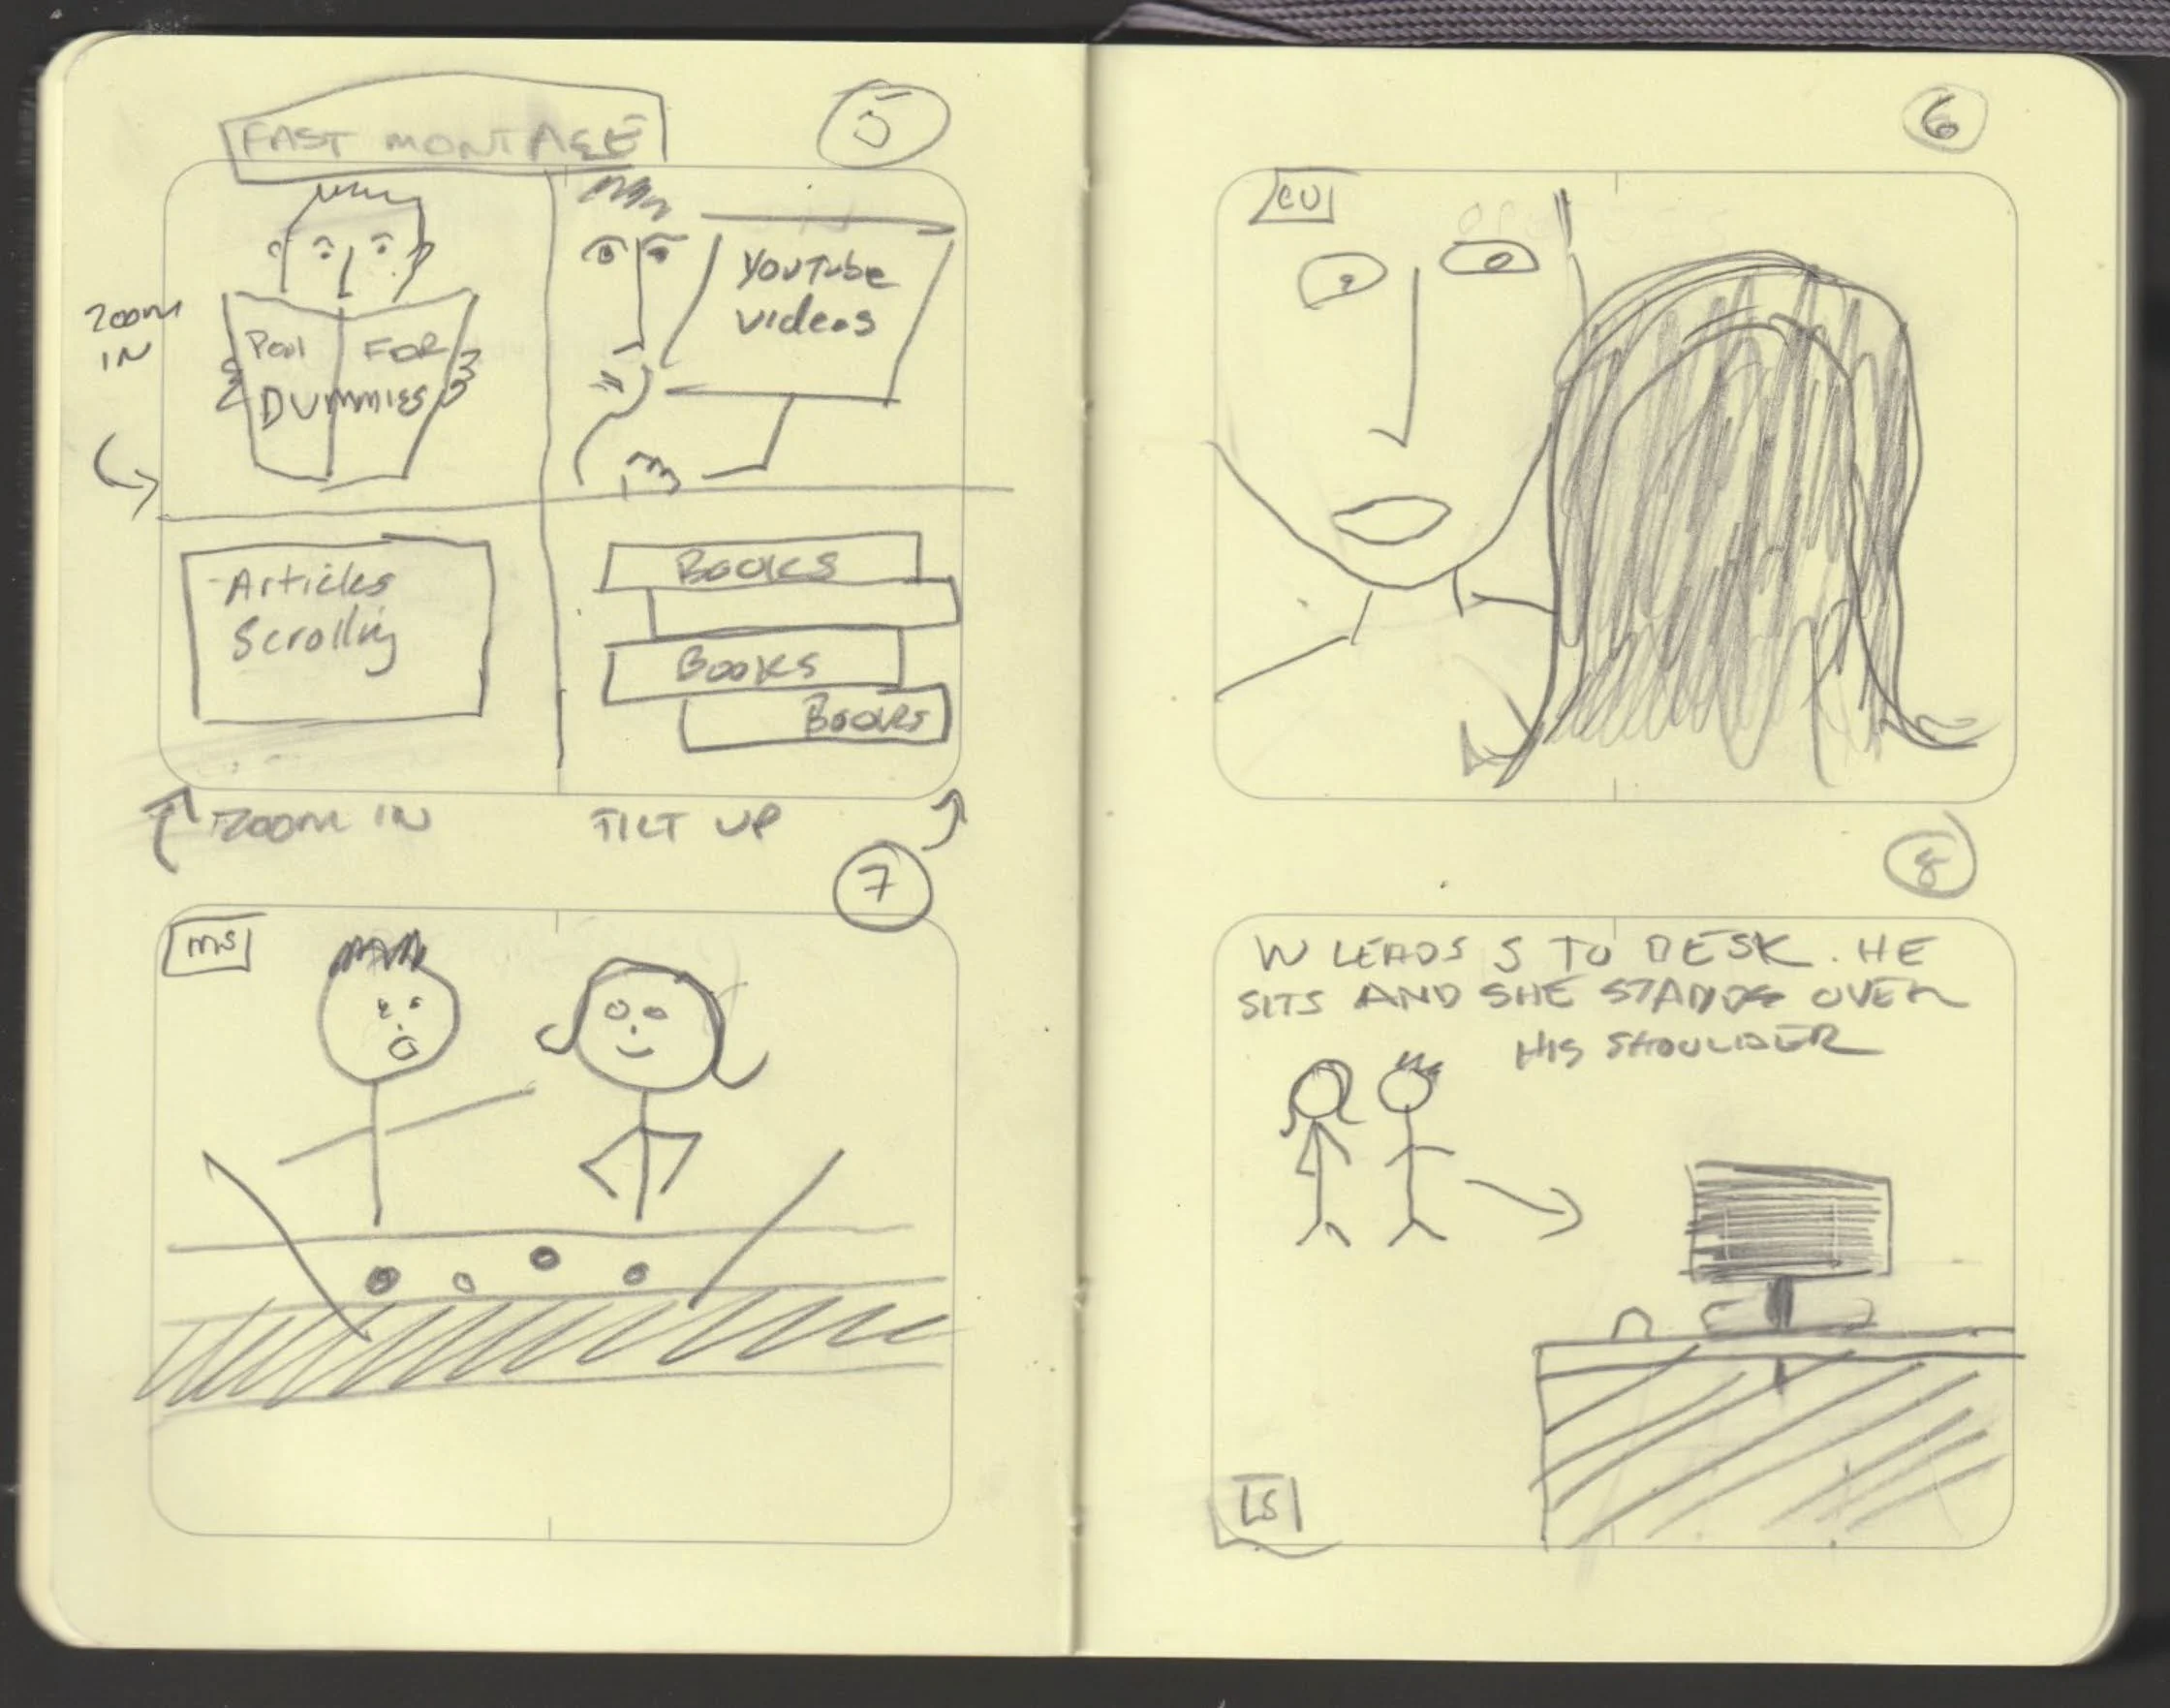 FAST MONTAGE
5
ZOOM
IN
Pool FOR
DUMMIES
YouTube
videos
Articles
Scrolling
BOOKS
BOOKS
BOOKS
ZOOM IN
TILT UP
7
MS
6
CU
8
W LEADS S TO DESK. HE
SITS AND SHE STANDS OVER
HIS SHOULDER
LS